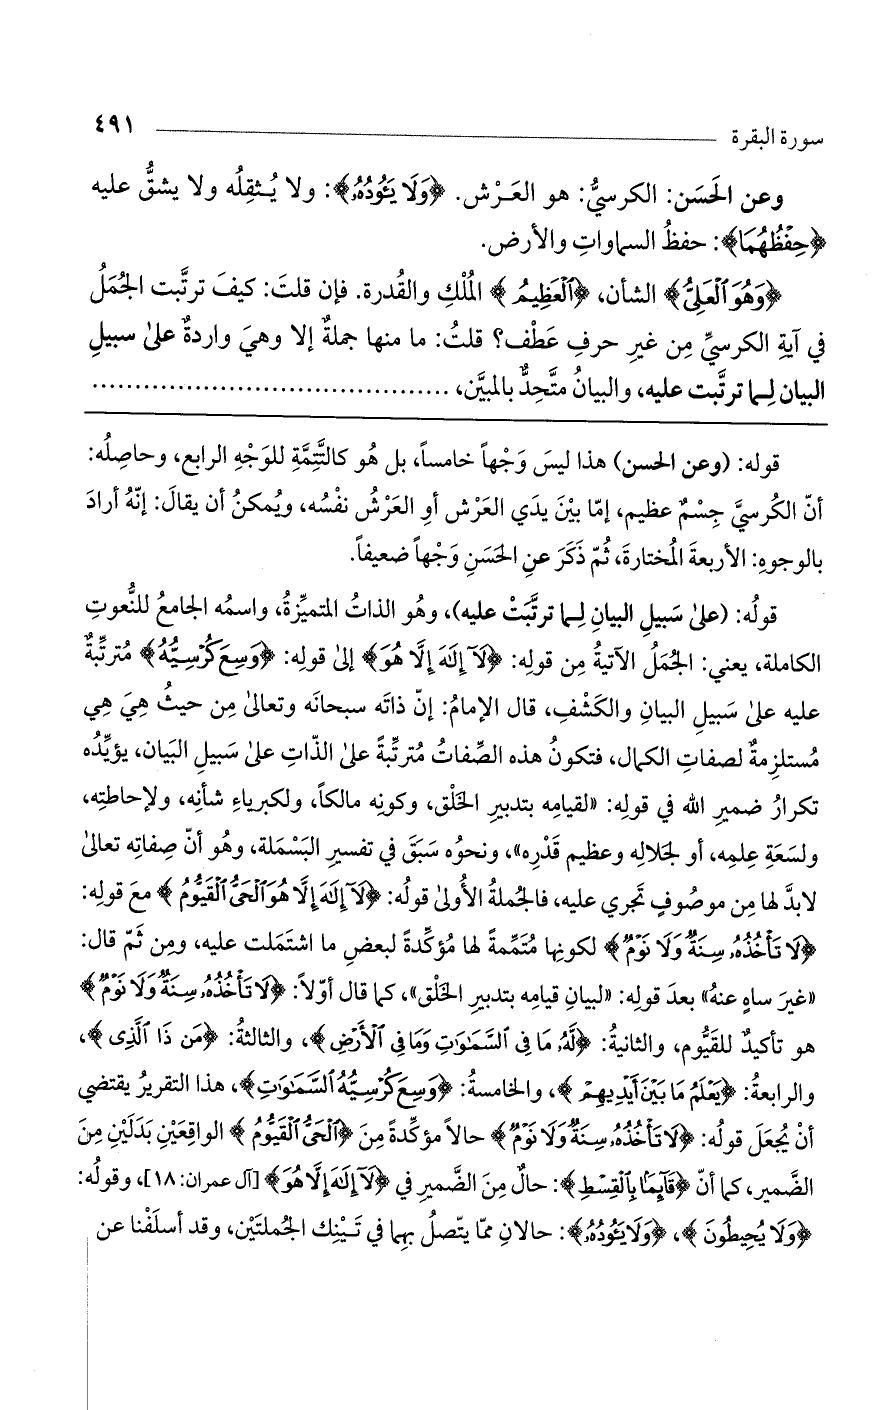 سورة البقرة ٤٩١
وعن الحَسَن: الكرسيُّ: هو العَرْش. ﴿وَلَا يَـُٔودُهُۥ﴾: ولا يُثقِلُه ولا يشقُّ عليه
﴿حِفْظُهُمَا﴾: حفظُ السماواتِ والأرض.
﴿وَهُوَ ٱلْعَلِىُّ﴾ الشأن، ﴿ٱلْعَظِيمُ﴾ المُلْكِ والقُدرة. فإن قلتَ: كيفَ ترتَّبت الجُمَلُ
في آيةِ الكرسيِّ مِن غيرِ حرفِ عَطْف؟ قلتُ: ما منها جملةٌ إلا وهيَ واردةٌ علىٰ سبيلِ
البيان لِـما ترتَّبت عليه، والبيانُ متَّحِدٌّ بالمبيَّن، ..........................................
قوله: (وعن الحسن) هذا ليسَ وَجْهاً خامساً، بل هُو كالتَّتِمَّةِ للوَجْهِ الرابع، وحاصِلُه:
أنّ الكُرسيَّ جِسْمٌ عظيم، إمّا بيْنَ يدَي العَرْش أوِ العَرْشُ نفْسُه، ويُمكنُ أن يقالَ: إنّهُ أرادَ
بالوجوهِ: الأربعةَ المُختارةَ، ثُمّ ذَكَرَ عنِ الحَسَنِ وَجْهاً ضعيفاً.
قولُه: (علىٰ سَبيلِ البيانِ لِـما ترتَّبَتْ عليه)، وهُو الذاتُ المتميِّزةُ، واسمُه الجامعُ للنُّعوتِ
الكاملة، يعني: الجُمَلُ الآتيةُ مِن قولِه: ﴿لَآ إِلَٰهَ إِلَّا هُوَ﴾ إلىٰ قولِه: ﴿وَسِعَ كُرْسِيُّهُ﴾ مُترتِّبةٌ
عليه علىٰ سَبيلِ البيانِ والكَشْفِ، قال الإمامُ: إنّ ذاتَه سبحانَه وتعالىٰ مِن حيثُ هِيَ هِي
مُستلزِمةٌ لصفاتِ الكمال، فتكونُ هذه الصِّفاتُ مُترتِّبةً علىٰ الذّاتِ علىٰ سَبيلِ البَيان، يؤيِّدُه
تكرارُ ضميرِ الله في قولِه: «لقيامِه بتدبيرِ الخَلْق، وكونِه مالكاً، ولكبرياءِ شأنِه، ولإحاطتِه،
ولسَعَةِ عِلمِه، أو لجَلالِه وعظيم قَدْرِه»، ونحوُه سَبَقَ في تفسيرِ البَسْمَلة، وهُو أنّ صِفاتِه تعالىٰ
لابدَّ لها مِن موصُوفٍ تَجري عليه، فالجُملةُ الأُولىٰ قولُه: ﴿لَآ إِلَٰهَ إِلَّا هُوَ ٱلْحَىُّ ٱلْقَيُّومُ﴾ معَ قولِه:
﴿لَا تَأْخُذُهُۥ سِنَةٌ وَلَا نَوْمٌ﴾ لكونِها مُتَمِّمةً لها مُؤكِّدةً لبعضِ ما اشتَمَلت عليه، ومِن ثَمّ قال:
«غيرَ ساهٍ عنهُ» بعدَ قولِه: «لبيانِ قيامِه بتدبيرِ الخَلْق»، كما قال أوّلاً: ﴿لَا تَأْخُذُهُۥ سِنَةٌ وَلَا نَوْمٌ﴾
هو تأكيدٌ للقَيُّوم، والثانيةُ: ﴿لَّهُۥ مَا فِى ٱلسَّمَٰوَٰتِ وَمَا فِى ٱلْأَرْضِ﴾، والثالثةُ: ﴿مَن ذَا ٱلَّذِى﴾،
والرابعةُ: ﴿يَعْلَمُ مَا بَيْنَ أَيْدِيهِمْ﴾، والخامسةُ: ﴿وَسِعَ كُرْسِيُّهُ ٱلسَّمَٰوَٰتِ﴾، هذا التقريرُ يقتضي
أنْ يُجعَلَ قولُه: ﴿لَا تَأْخُذُهُۥ سِنَةٌ وَلَا نَوْمٌ﴾ حالاً مؤكِّدةً مِنَ ﴿ٱلْحَىُّ ٱلْقَيُّومُ﴾ الواقعَيْنِ بَدَلَيْنِ مِنَ
الضَّمير، كما أنّ ﴿قَآئِمًۢا بِٱلْقِسْطِ﴾: حالٌ مِنَ الضَّميرِ في ﴿لَآ إِلَٰهَ إِلَّا هُوَ﴾ [آل عمران: ١٨]، وقولُه:
﴿وَلَا يُحِيطُونَ﴾، ﴿وَلَا يَـُٔودُهُۥ﴾: حالانِ ممّا يتّصلُ بهِما في تَـيْنِك الجُملتَيْن، وقد أسلَفْنا عن